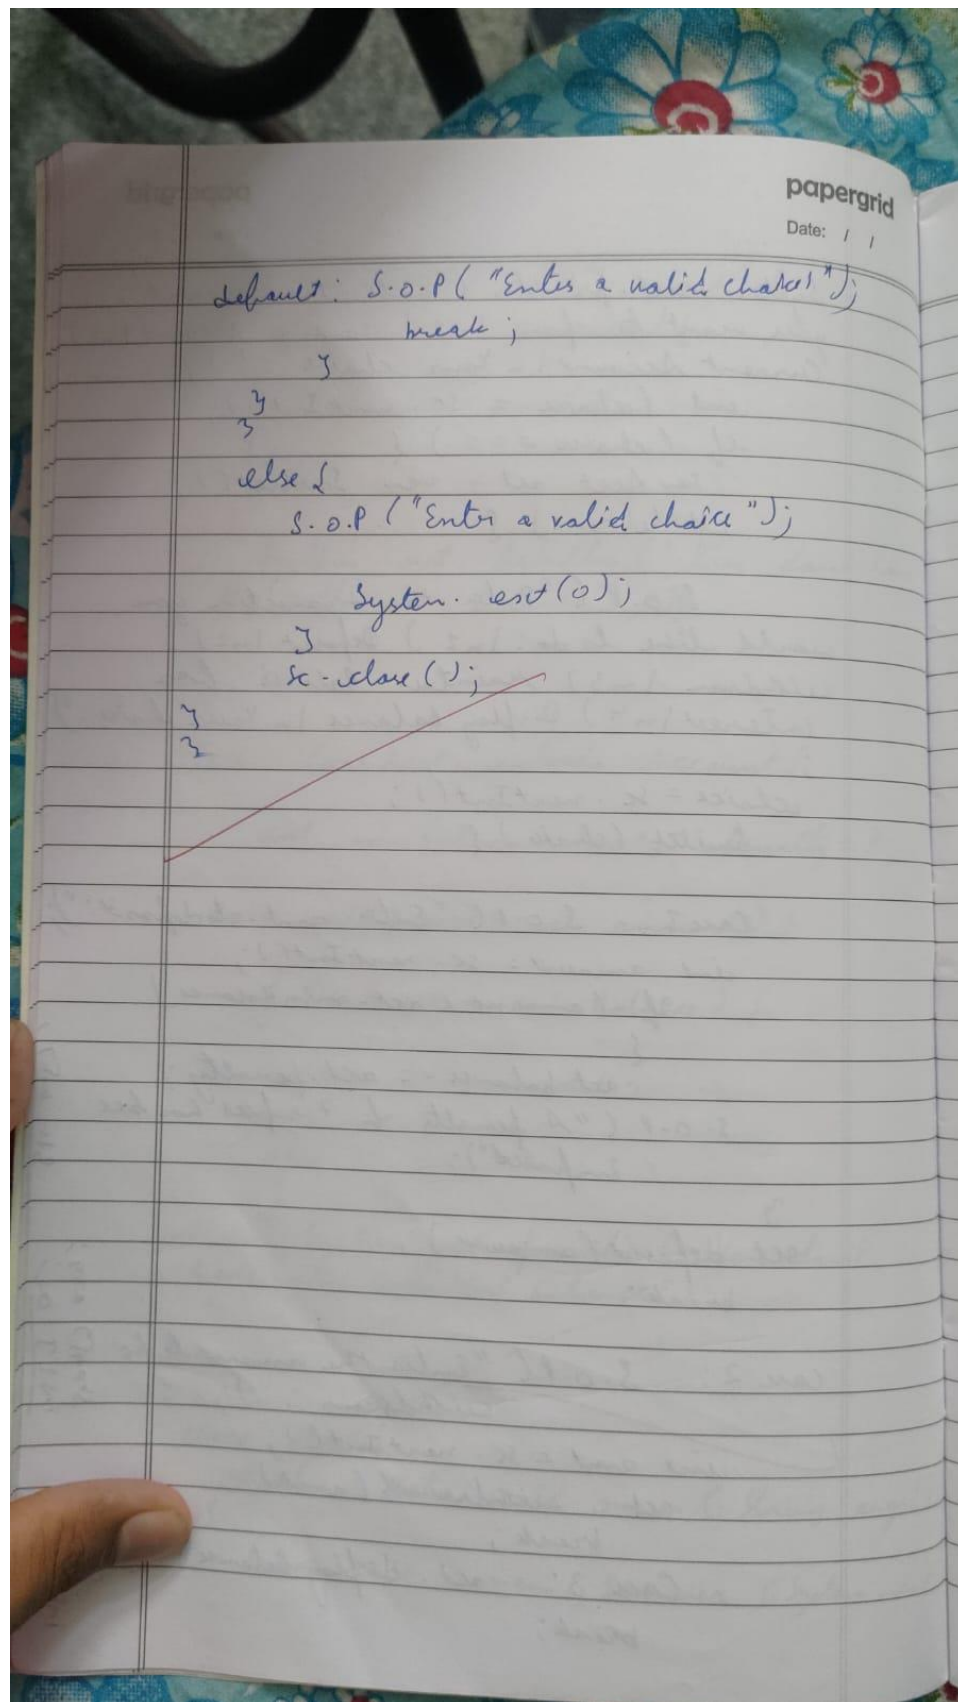 papergrid
Date: / /
default: S.O.P( "Enter a valid choice!");
break;
}
}
}
else {
S.O.P ("Enter a valid choice");
System. exit(0);
}
sc.close();
}
}